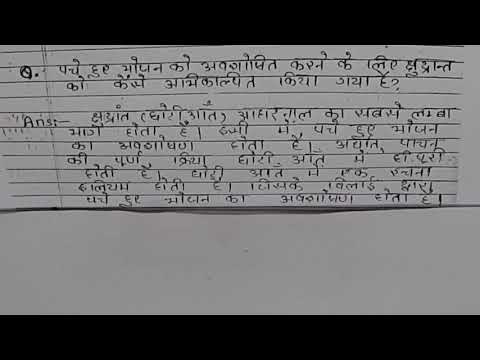 Q. पचे हुए भोजन को अवशोषित करने के लिए क्षुद्रान्त
को कैसे अभिकल्पित किया गया है?
Ans:- क्षुद्रांत (छोटी आँत) आहारनाल का सबसे लम्बा
भाग होता है। इसी में, पचे हुए भोजन
का अवशोषण होता है। अर्थात पाचन
की पूर्ण क्रिया छोटी आँत में ही पूरी
होती है, छोटी आंत में एक रचना
होती है। जिसके विलाई द्वारा
पचे हुए भोजन का अवशोषण होता है।